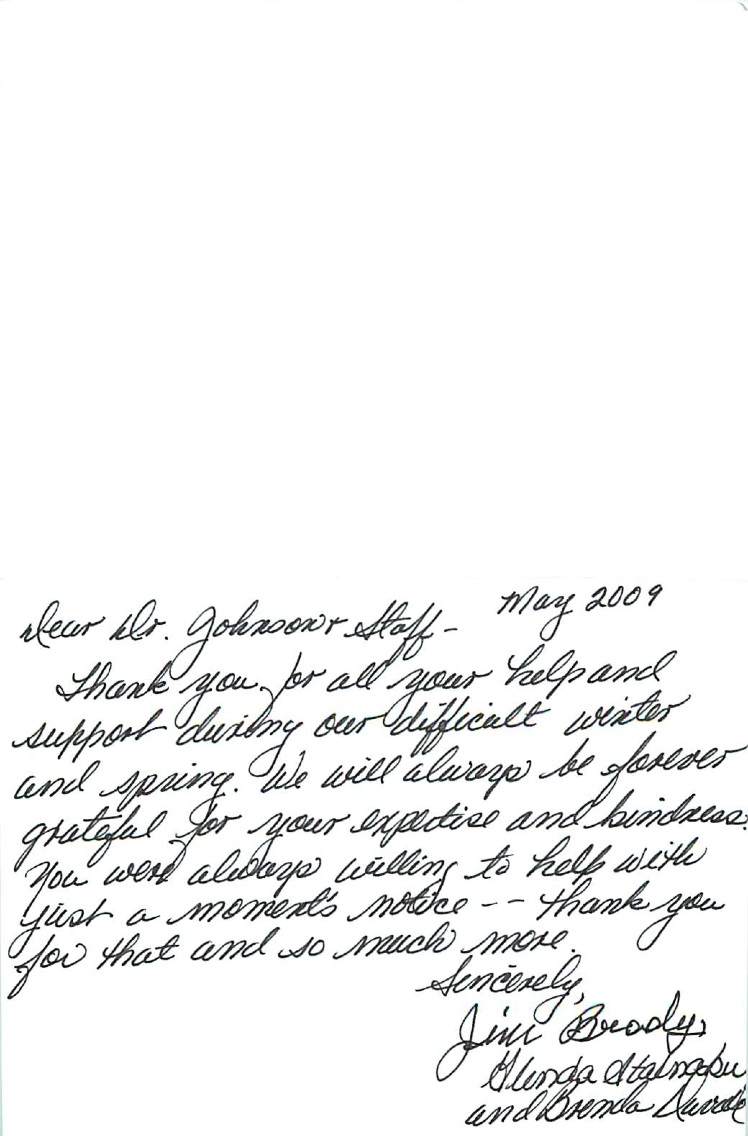 May 2009
Dear Dr. Johnson & Staff -
Thank you for all your help and
support during our difficult winter
and spring. We will always be forever
grateful for your expertise and kindness.
You were always willing to help with
just a moment's notice -- thank you
for that and so much more.
Sincerely,
Jim Brody,
Glenda
and Brenda